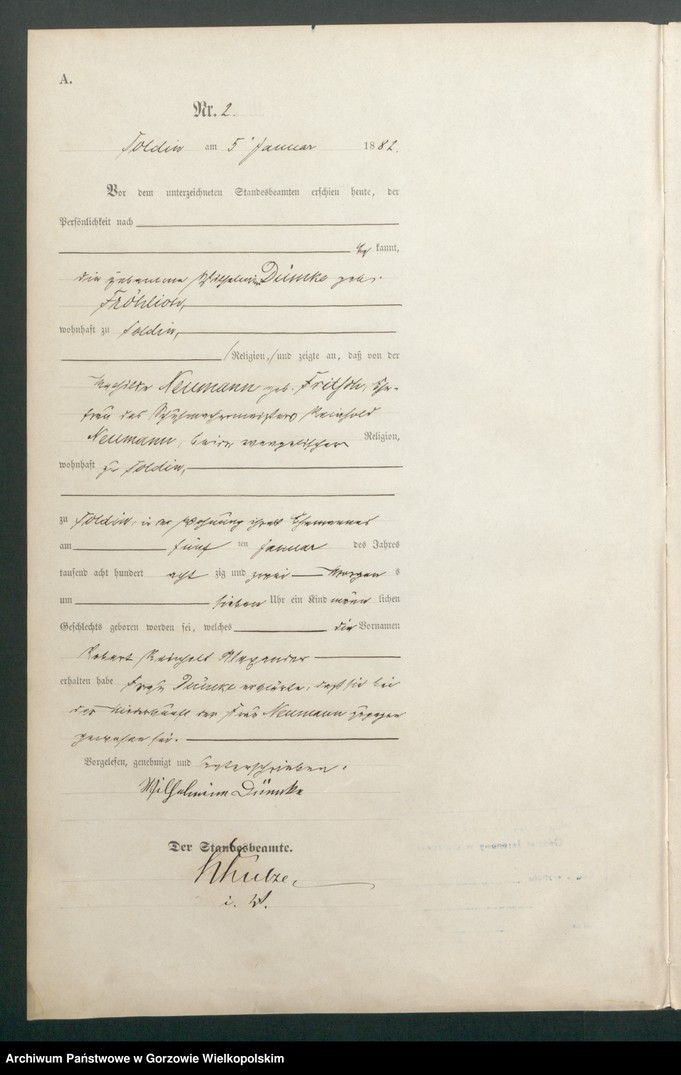 A.
Nr. 2.
Soldin am 5 Januar 1882.
Vor dem unterzeichneten Standesbeamten erschien heute, der
Persönlichkeit nach
be kannt,
die Hebamme Wilhelmine Dümke geb.
Fröhlich,
wohnhaft zu Soldin,
/Religion,/ und zeigte an, daß von der
Neumann geb. Fritsch, Ehe-
frau des Schuhmachermeisters Reinhold
Neumann, beide evangelischer Religion,
wohnhaft zu Soldin,
zu Soldin in der Wohnung ihres Ehemannes
am fünf ten Januar des Jahres
tausend acht hundert acht zig und zwei Morgen s
um sieben Uhr ein Kind männ lichen
Geschlechts geboren worden sei, welches die Vornamen
Robert Reinhold Alexander
erhalten habe Frau Dümke erklärte, daß sie bei
der Niederkunft der Frau Neumann zugegen
gewesen sei.
Vorgelesen, genehmigt und unterschrieben.
Wilhelmine Dümke
Der Standesbeamte.
Schulze
i. V.
Archiwum Państwowe w Gorzowie Wielkopolskim